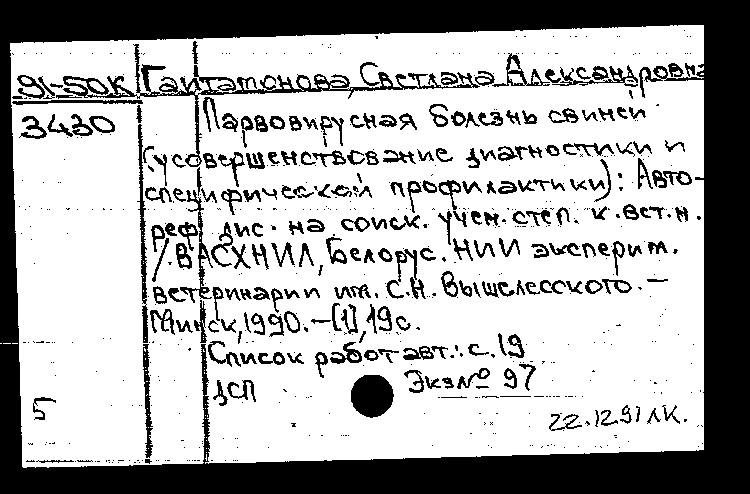 91-50К Гайтамонова, Светлана Александровна
3430 Парвовирусная болезнь свиней
(усовершенствование диагностики и
специфической профилактики): Авто-
реф. дис. на соиск. учен. степ. к. вет. н.
/. ВАСХНИЛ, Белорус. НИИ эксперим.
ветеринарии им. С.Н. Вышелесского. –
Минск, 1990. – [1], 19 с.
Список работ авт.: с. 19
ДСП Экз № 97
5
22.12.91 ЛК.